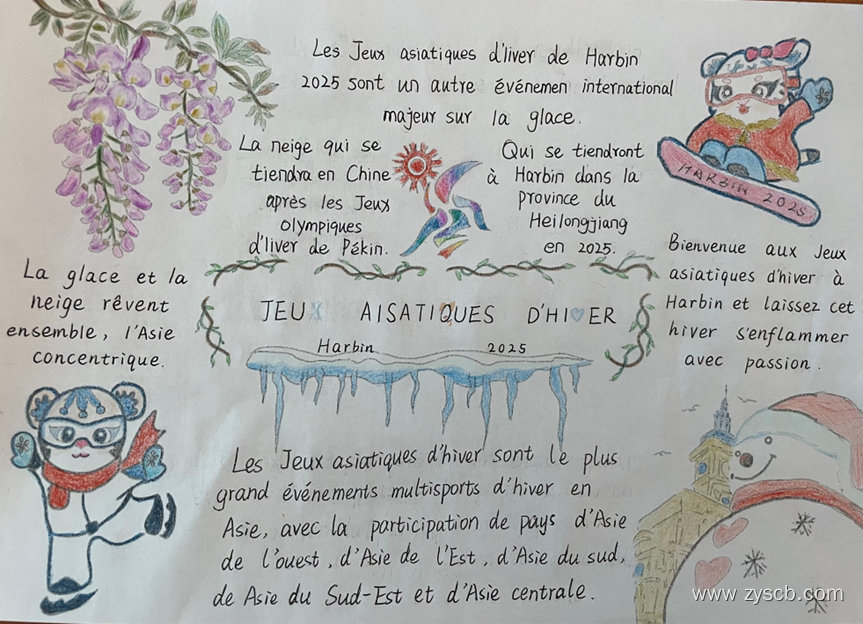 Les Jeux asiatiques d'liver de Harbin
2025 sont un autre événemen international
majeur sur la glace.
La neige qui se
tiendra en Chine
après les Jeux
olympiques
d'liver de Pékin.
Qui se tiendront
à Harbin dans la
province du
Heilongjiang
en 2025.
HARBIN 2025
La glace et la
neige rêvent
ensemble, l'Asie
concentrique.
JEUX AISATIQUES D'HIVER
Harbin 2025
Bienvenue aux Jeux
asiatiques d'hiver à
Harbin et laissez cet
hiver s'enflammer
avec passion.
Les Jeux asiatiques d'hiver sont le plus
grand événements multisports d'hiver en
Asie, avec la participation de pays d'Asie
de l'ouest, d'Asie de l'Est, d'Asie du sud,
de Asie du Sud-Est et d'Asie centrale.
www.zyscb.com